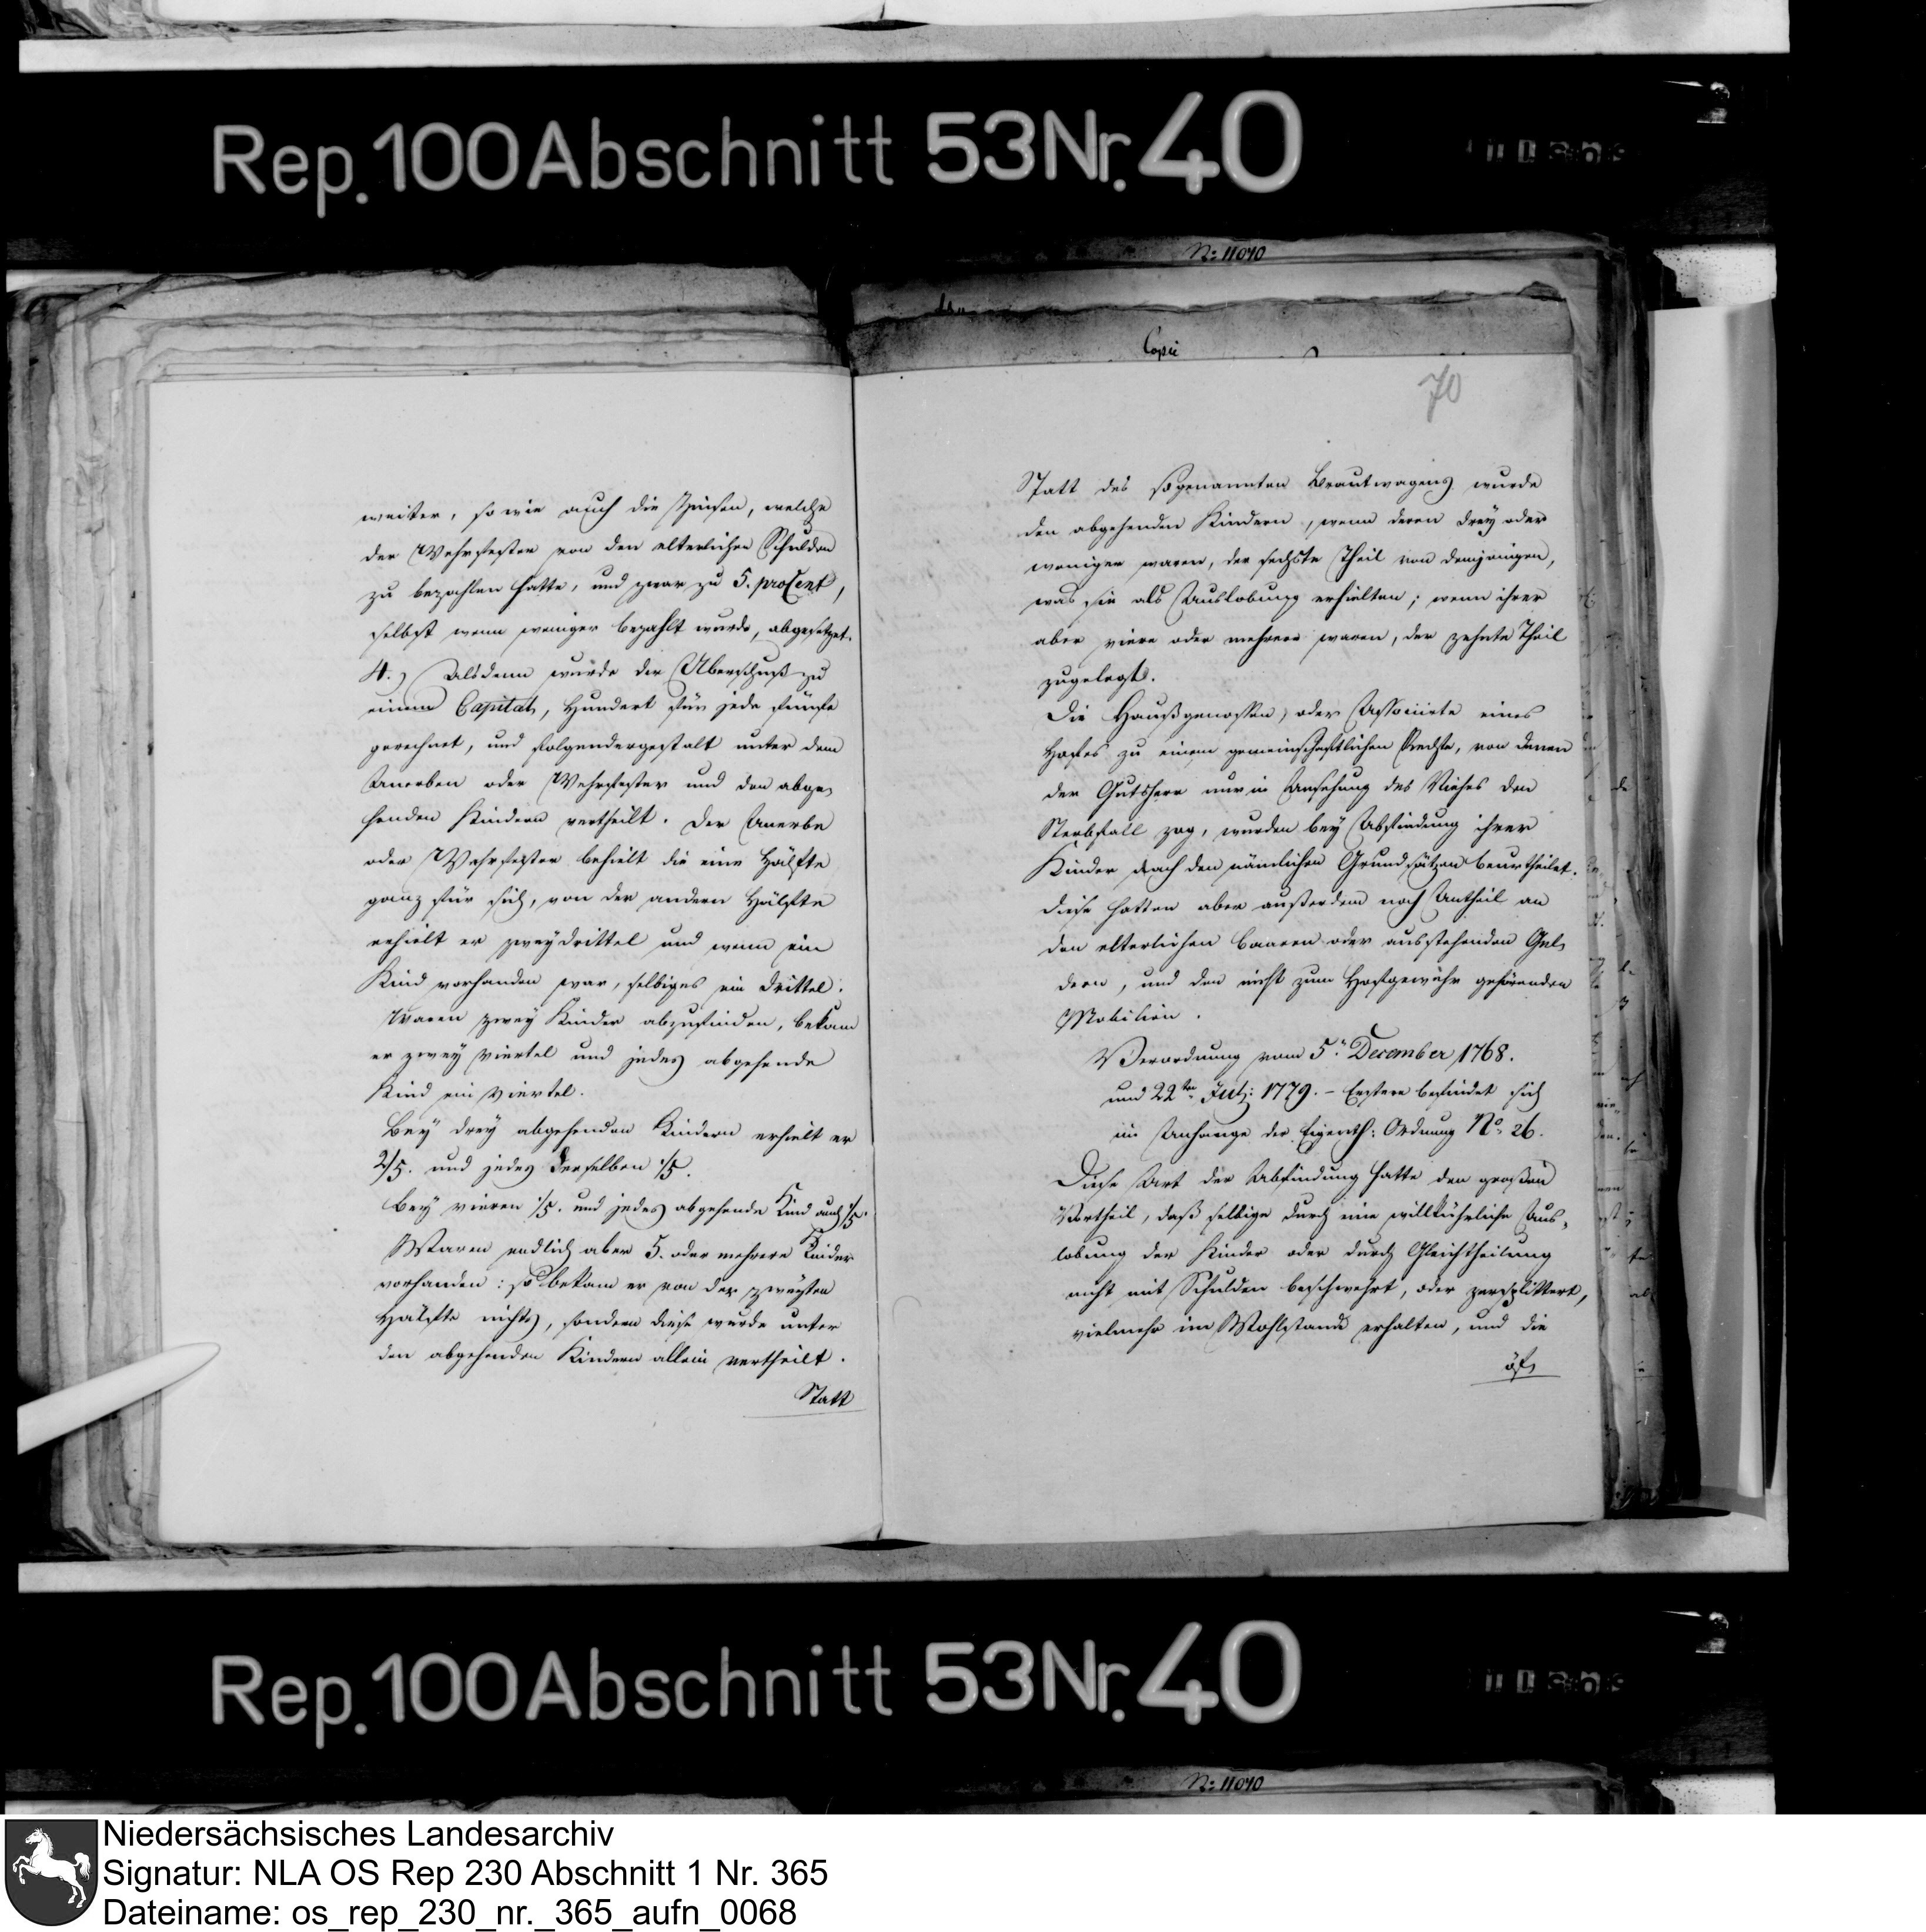 Rep. 100 Abschnitt 53 Nr. 40
N: 11040
Copie
70
weiter, so wie auch die Zinsen, welche
der Wehrfester von den elterlichen Schulden
zu bezahlen hatte, und zwar zu 5. proCent,
selbst wenn weniger bezahlt wurde, abgesetzet.
4.) Alsdenn wurde der Überschuß zu
einem Capital, Hundert für jede fünfe
gerechnet, und folgendergestalt unter dem
Anerben oder Wehrfester und den abge-
henden Kindern vertheilt. Der Anerbe
oder Wehrfester behielt die eine Hälfte
ganz für sich, von der andern Hälfte
erhielt er zweydrittel und wenn ein
Kind vorhanden war, selbiges ein drittel.
Waren zwey Kinder abzufinden, bekam
er zwey viertel und jedes abgehende
Kind ein viertel.
Bey drey abgehenden Kindern erhielt er
2/5. und jedes derselben 1/5.
Bey vieren 1/5. und jedes abgehende Kind auch 1/5.
Waren endlich aber 5. oder mehrere Kinder
vorhanden: so bekam er von der zweyten
Hälfte nichts, sondern diese wurde unter
den abgehenden Kindern allein vertheilt.
Statt
Statt des sogenannten Brautwagens wurde
den abgehenden Kindern, wenn deren drey oder
weniger waren, der sechste Theil von demjenigen,
was sie als Auslobung erhielten; wenn ihrer
aber viere oder mehrere waren, der zehnte Theil
zugelegt.
Die Haußgenossen, oder Associirte eines
Hofes zu einem gemeinschaftlichen Rechte, von denen
der Gutsherr nur in Ansehung des Viehes den
Sterbfall zog, wurden bey Abfindung ihrer
Kinder nach den nämlichen Grundsätzen beurtheilet.
Diese hatten aber außerdem noch Antheil an
den elterlichen baaren oder ausstehenden Gel-
dern, und den nicht zum Hofgewähr gehörenden
Mobilien.
Verordnung vom 5. December 1768.
und 22ten July 1779. – Erstere befindet sich
im Anhange der Eigenth: Ordnung No. 26.
Diese Art der Abfindung hatte den großen
Vortheil, daß selbige durch eine willkührliche Aus-
lobung der Kinder oder durch Gleichtheilung
nicht mit Schulden beschwehrt, oder zersplittert,
vielmehr im Wohlstande erhalten, und die
öf-
Rep. 100 Abschnitt 53 Nr. 40
N: 11040
Niedersächsisches Landesarchiv
Signatur: NLA OS Rep 230 Abschnitt 1 Nr. 365
Dateiname: os_rep_230_nr._365_aufn_0068